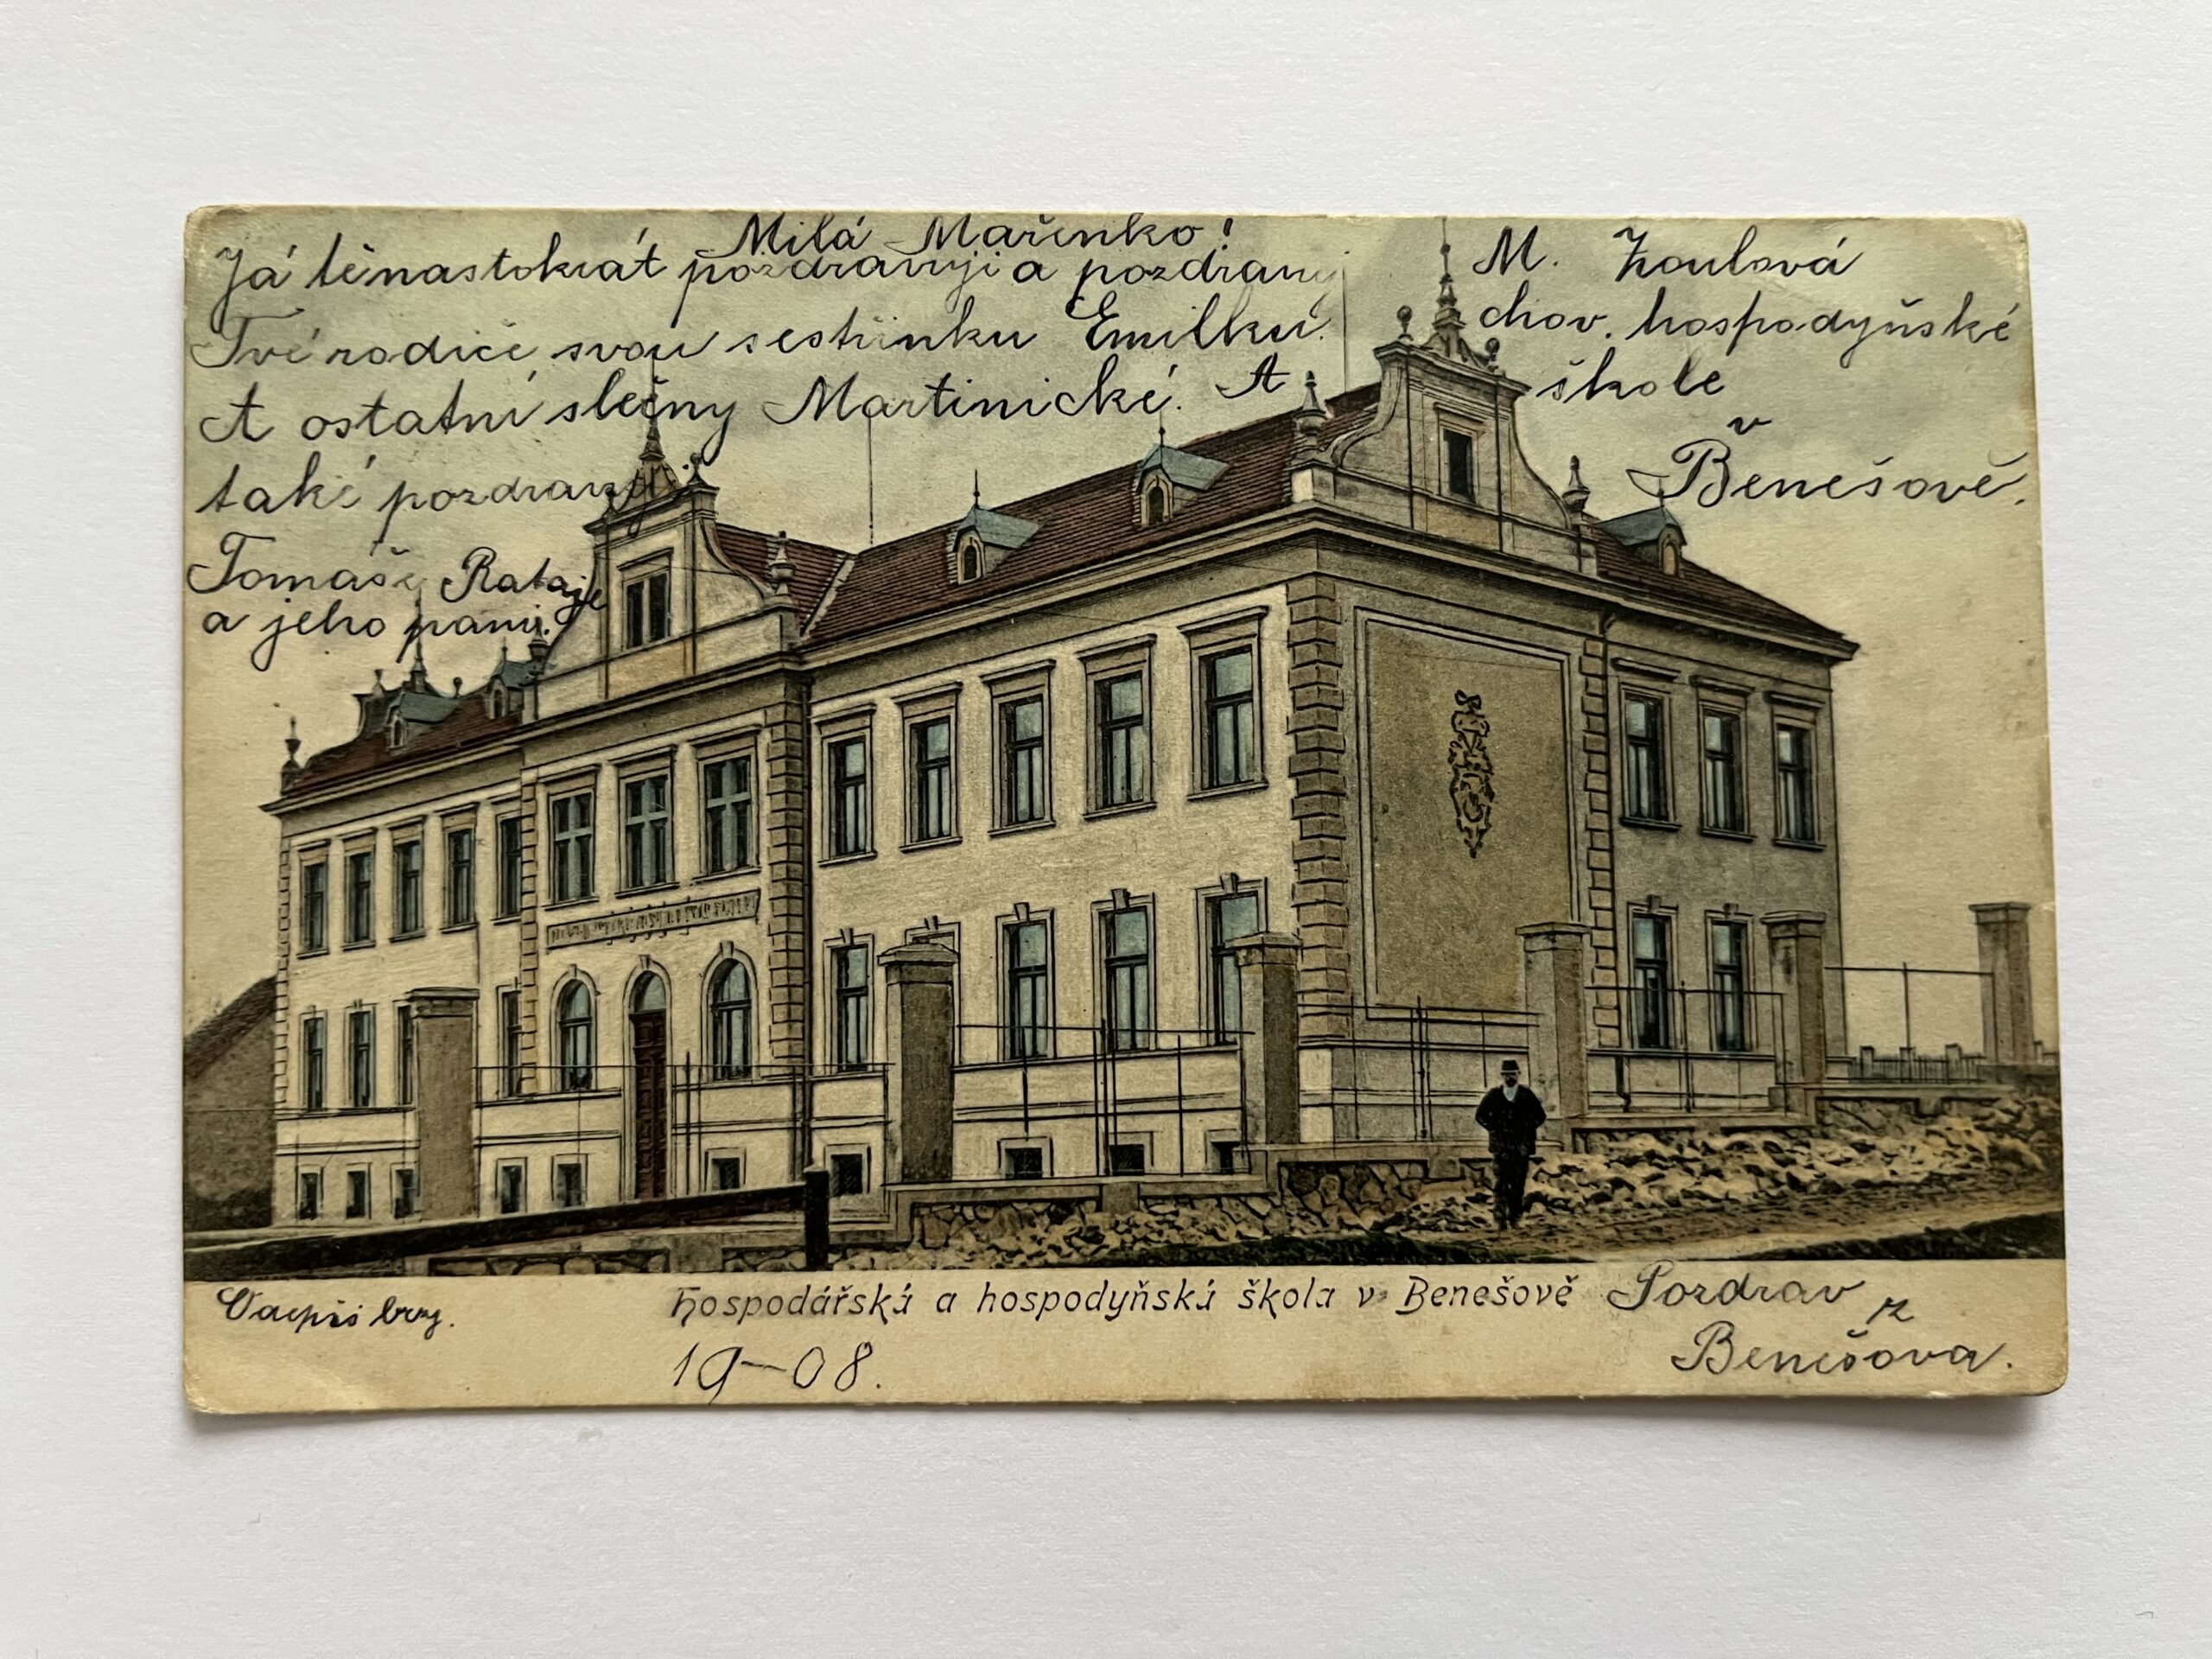 Milá Mařenko!
Já tě nastokrát pozdravuji a pozdravuj
Tvé rodiče svou sestřinku Emilku.
A ostatní slečny Martinické. A
také pozdravuj
Tomáše Rataje
a jeho paní.
M. Koulová
chov. hospodyňské
škole
v
Benešově.
brzy.
Hospodářská a hospodyňská škola v Benešově
Pozdrav
z
Benešova.
19-08.